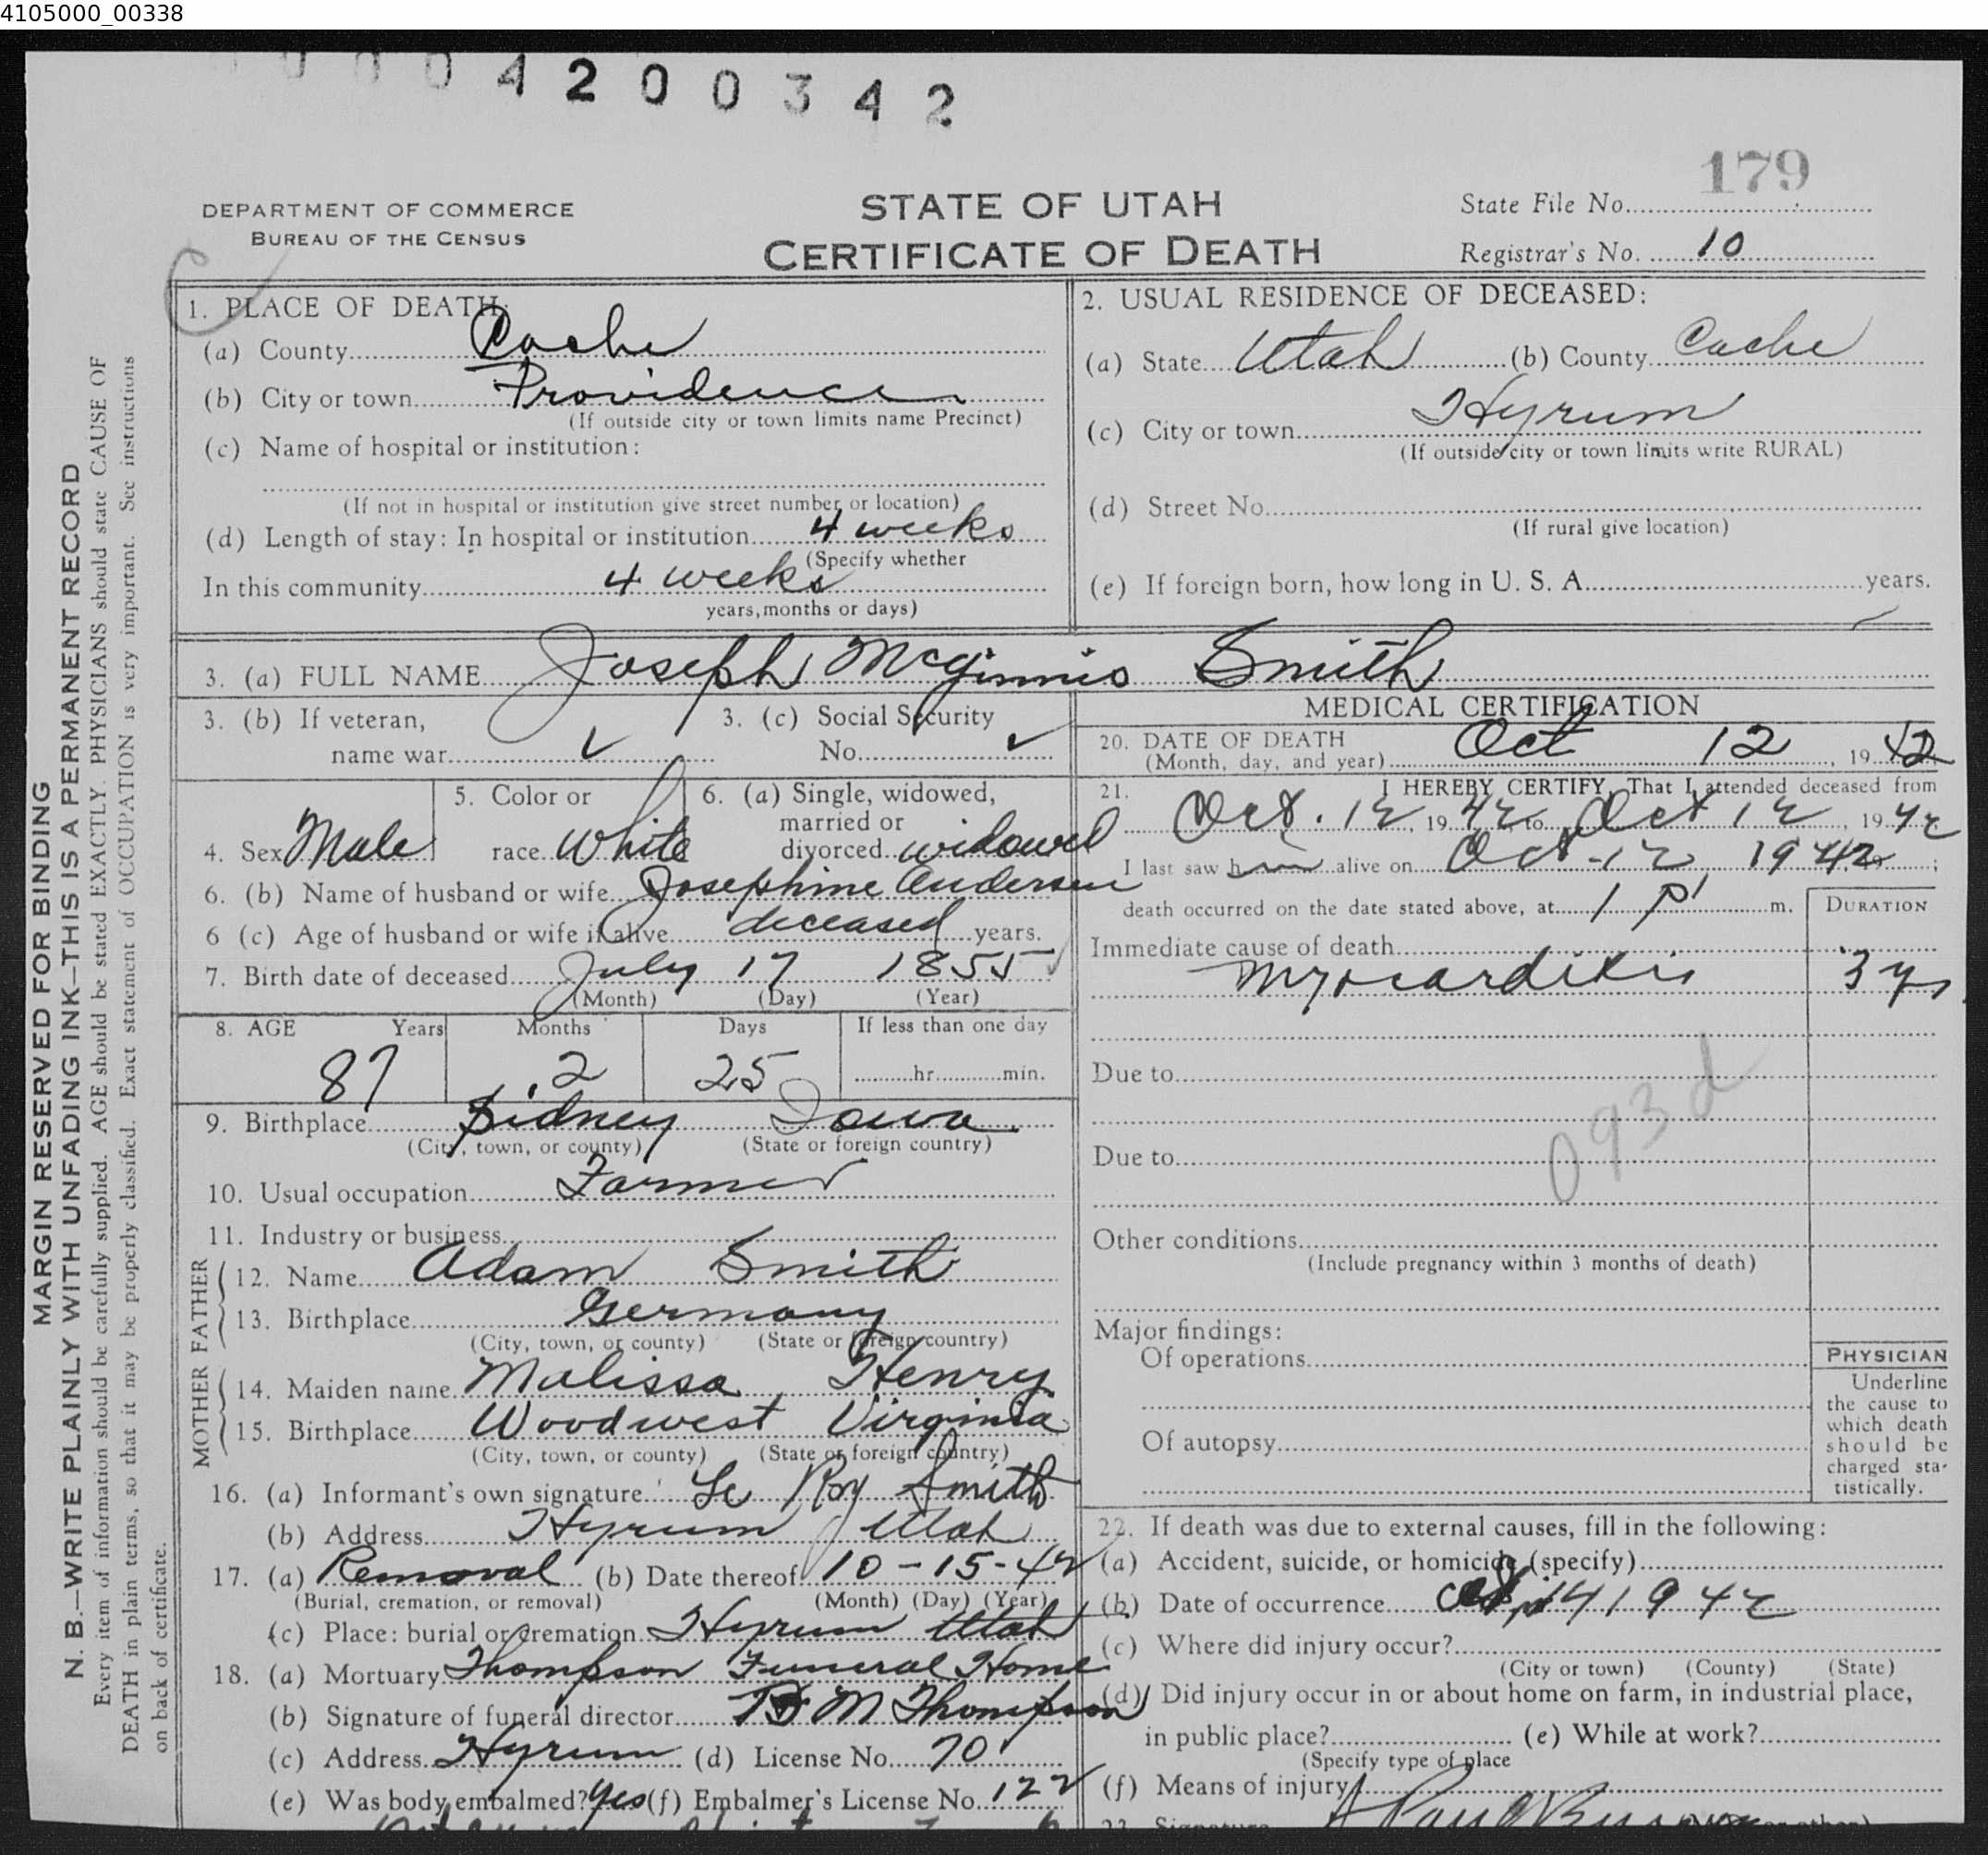 4105000_00338
0004200342
179
DEPARTMENT OF COMMERCE
BUREAU OF THE CENSUS
STATE OF UTAH
CERTIFICATE OF DEATH
State File No.
Registrar's No. 10
C
MARGIN RESERVED FOR BINDING
N. B.—WRITE PLAINLY WITH UNFADING INK—THIS IS A PERMANENT RECORD
Every item of information should be carefully supplied. AGE should be stated EXACTLY. PHYSICIANS should state CAUSE OF
DEATH in plain terms, so that it may be properly classified. Exact statement of OCCUPATION is very important. See instructions
on back of certificate.
1. PLACE OF DEATH:
(a) County Cache
(b) City or town Providence
(If outside city or town limits name Precinct)
(c) Name of hospital or institution:
(If not in hospital or institution give street number or location)
(d) Length of stay: In hospital or institution 4 weeks
(Specify whether
In this community 4 weeks
years, months or days)
2. USUAL RESIDENCE OF DECEASED:
(a) State Utah (b) County Cache
(c) City or town Hyrum
(If outside city or town limits write RURAL)
(d) Street No.
(If rural give location)
(e) If foreign born, how long in U. S. A. years.
3. (a) FULL NAME Joseph McGinnis Smith
3. (b) If veteran,
name war
3. (c) Social Security
No.
4. Sex Male
5. Color or
race White
6. (a) Single, widowed,
married or
divorced widowed
6. (b) Name of husband or wife Josephine Andersen
6 (c) Age of husband or wife if alive deceased years.
7. Birth date of deceased July 17 1855
(Month) (Day) (Year)
8. AGE Years Months Days If less than one day
87 2 25 hr. min.
9. Birthplace Sidney Iowa
(City, town, or county) (State or foreign country)
10. Usual occupation Farmer
11. Industry or business
FATHER
12. Name Adam Smith
13. Birthplace Germany
(City, town, or county) (State or foreign country)
MOTHER
14. Maiden name Malissa Henry
15. Birthplace Woodwest Virginia
(City, town, or county) (State or foreign country)
16. (a) Informant's own signature Le Roy Smith
(b) Address Hyrum Utah
17. (a) Removal (b) Date thereof 10-15-42
(Burial, cremation, or removal) (Month) (Day) (Year)
(c) Place: burial or cremation Hyrum Utah
18. (a) Mortuary Thompson Funeral Home
(b) Signature of funeral director B M Thompson
(c) Address Hyrum (d) License No. 70
(e) Was body embalmed? Yes (f) Embalmer's License No. 122
MEDICAL CERTIFICATION
20. DATE OF DEATH
(Month, day, and year) Oct 12, 1942
21. I HEREBY CERTIFY, That I attended deceased from
Oct. 12, 1942 to Oct 12, 1942
I last saw him alive on Oct-12 1942 19 ;
death occurred on the date stated above, at 1 P m.
DURATION
Immediate cause of death
Myocarditis 3 yrs
Due to
093d
Due to
Other conditions
(Include pregnancy within 3 months of death)
Major findings:
Of operations
Of autopsy
PHYSICIAN
Underline
the cause to
which death
should be
charged sta-
tistically.
22. If death was due to external causes, fill in the following:
(a) Accident, suicide, or homicide (specify)
(b) Date of occurrence 14 1942
(c) Where did injury occur?
(City or town) (County) (State)
(d) Did injury occur in or about home on farm, in industrial place,
in public place? (e) While at work?
(Specify type of place
(f) Means of injury
23. Signature